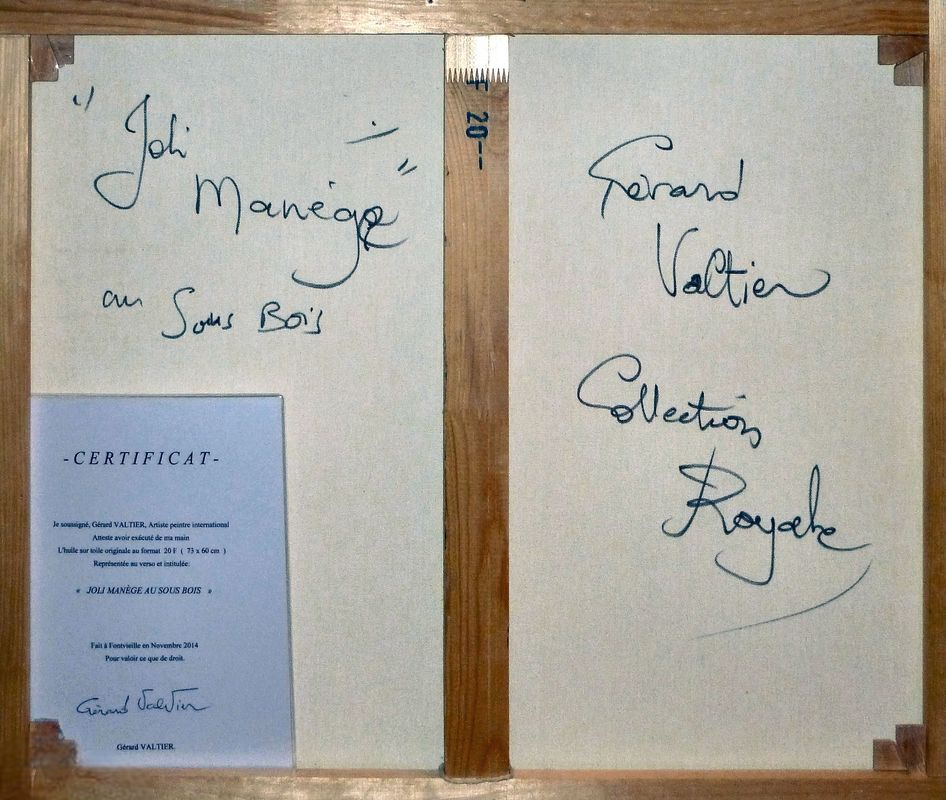 " Joli
Manège "
au Sous Bois
F 20--
Gérard
Valtier
Collection
Royale
-CERTIFICAT-
Je soussigné, Gérard VALTIER, Artiste peintre international
Atteste avoir exécuté de ma main
L'huile sur toile originale au format 20 F ( 73 x 60 cm )
Représentée au verso et intitulée:
« JOLI MANÈGE AU SOUS BOIS »
Fait à Fontvieille en Novembre 2014
Pour valoir ce que de droit.
Gérard Valtier
Gérard VALTIER.